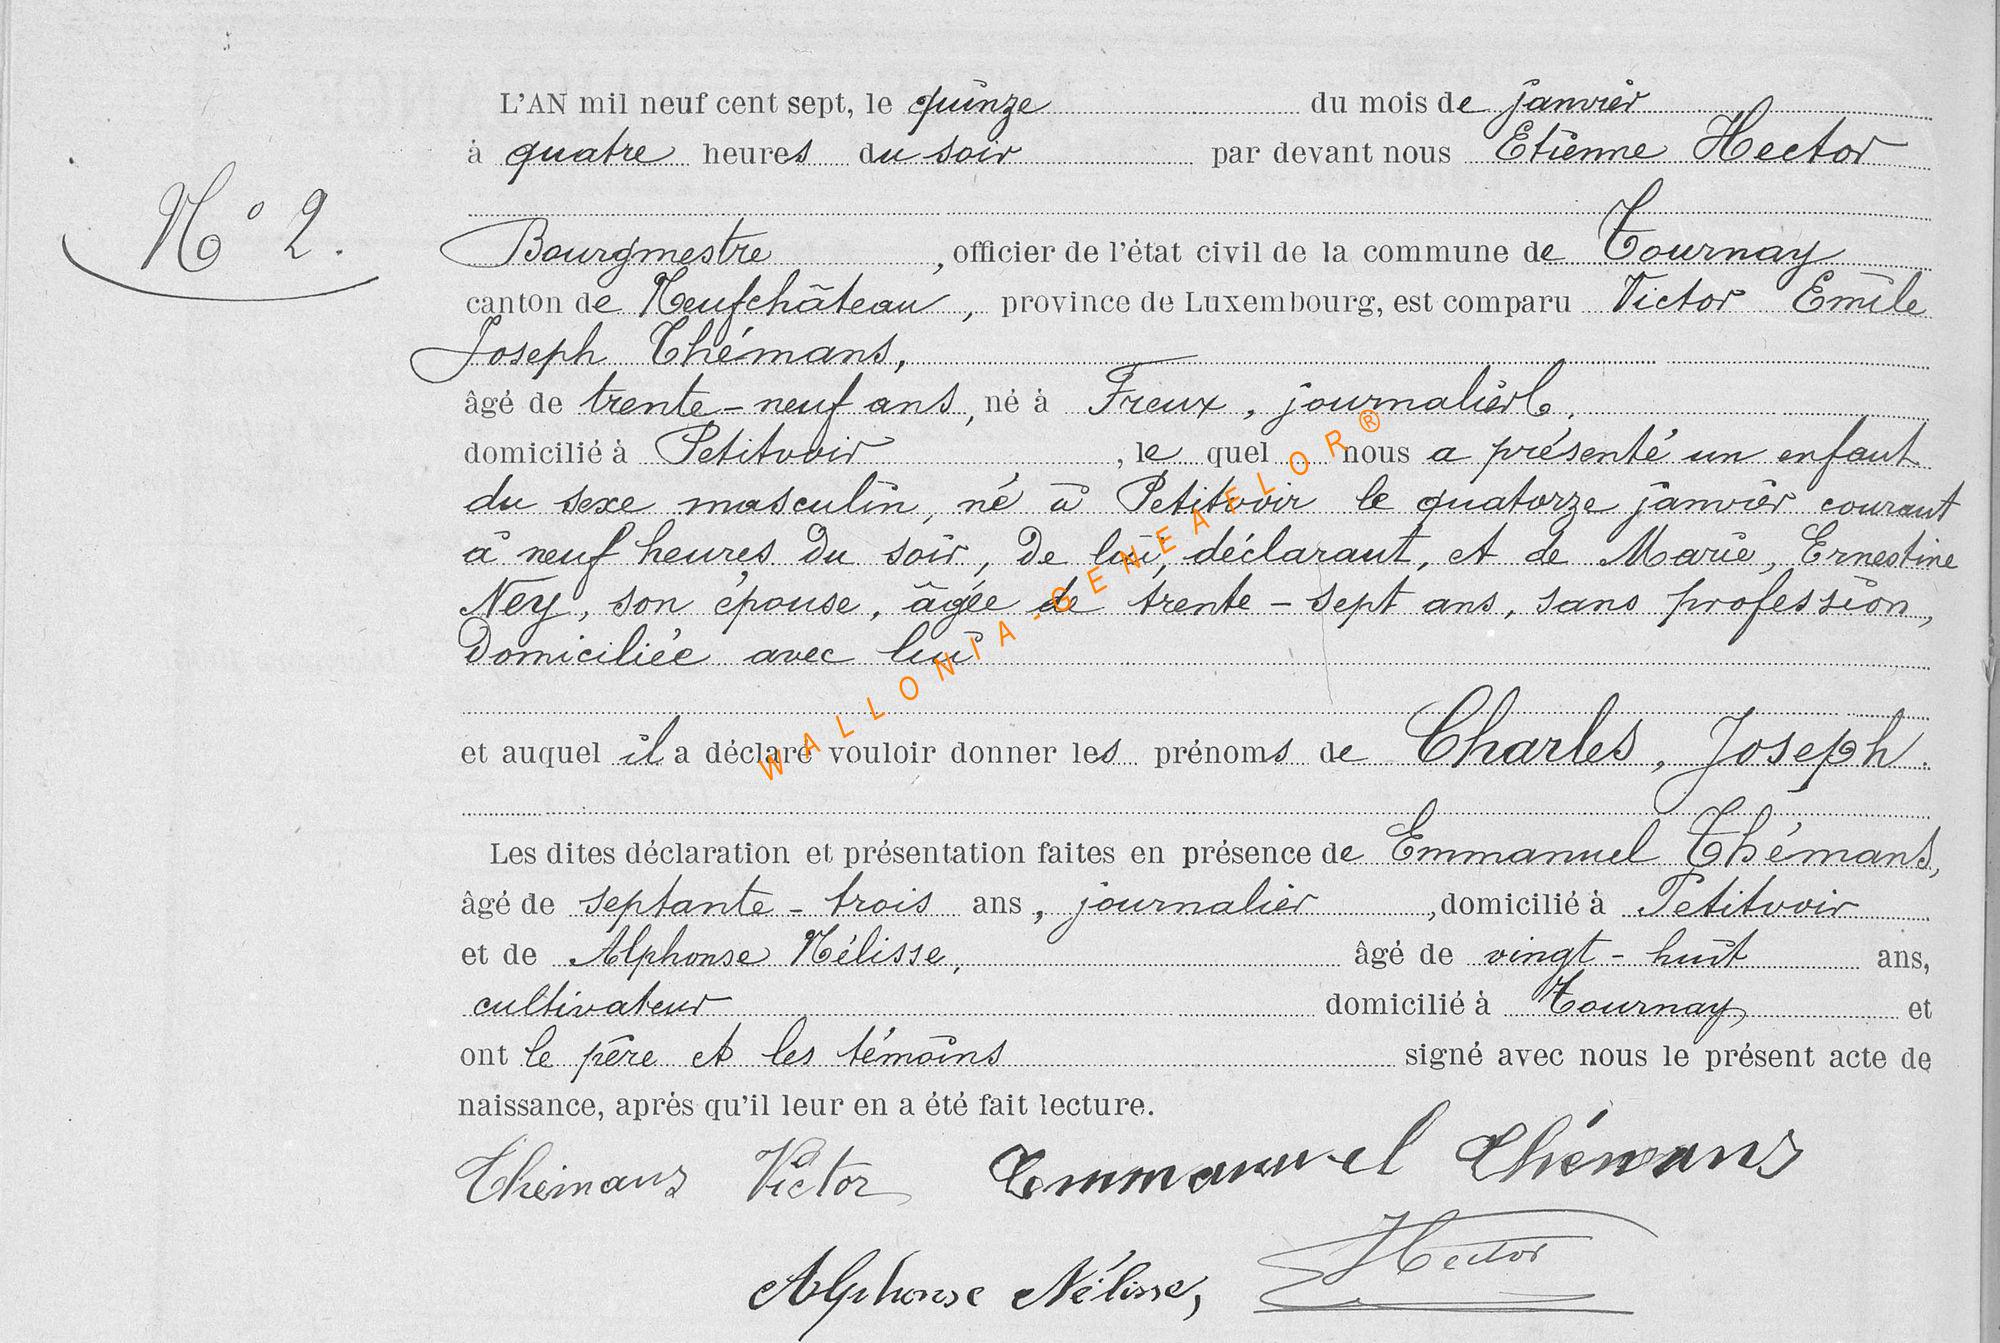 L'AN mil neuf cent sept, le quinze du mois de janvier
à quatre heures du soir par devant nous Etienne Hector
N° 2.
Bourgmestre, officier de l'état civil de la commune de Tournay
canton de Neufchâteau, province de Luxembourg, est comparu Victor Emile
Joseph Thémans,
âgé de trente-neuf ans, né à Freux, journalier,
domicilié à Petitvoir, le quel nous a présenté un enfant
du sexe masculin, né à Petitvoir le quatorze janvier courant
à neuf heures du soir, de lui, déclarant, et de Marie, Ernestine
Ney, son épouse, âgée de trente-sept ans, sans profession,
domiciliée avec lui
et auquel il a déclaré vouloir donner les prénoms de Charles, Joseph.
Les dites déclaration et présentation faites en présence de Emmanuel Thémans,
âgé de septante-trois ans, journalier, domicilié à Petitvoir
et de Alphonse Nélisse, âgé de vingt-huit ans,
cultivateur domicilié à Tournay et
ont le père et les témoins signé avec nous le présent acte de
naissance, après qu'il leur en a été fait lecture.
Thémans Victor Emmanuel Thémans
Alphonse Nélisse, Hector
WALLONIA-GENEAFLOR®